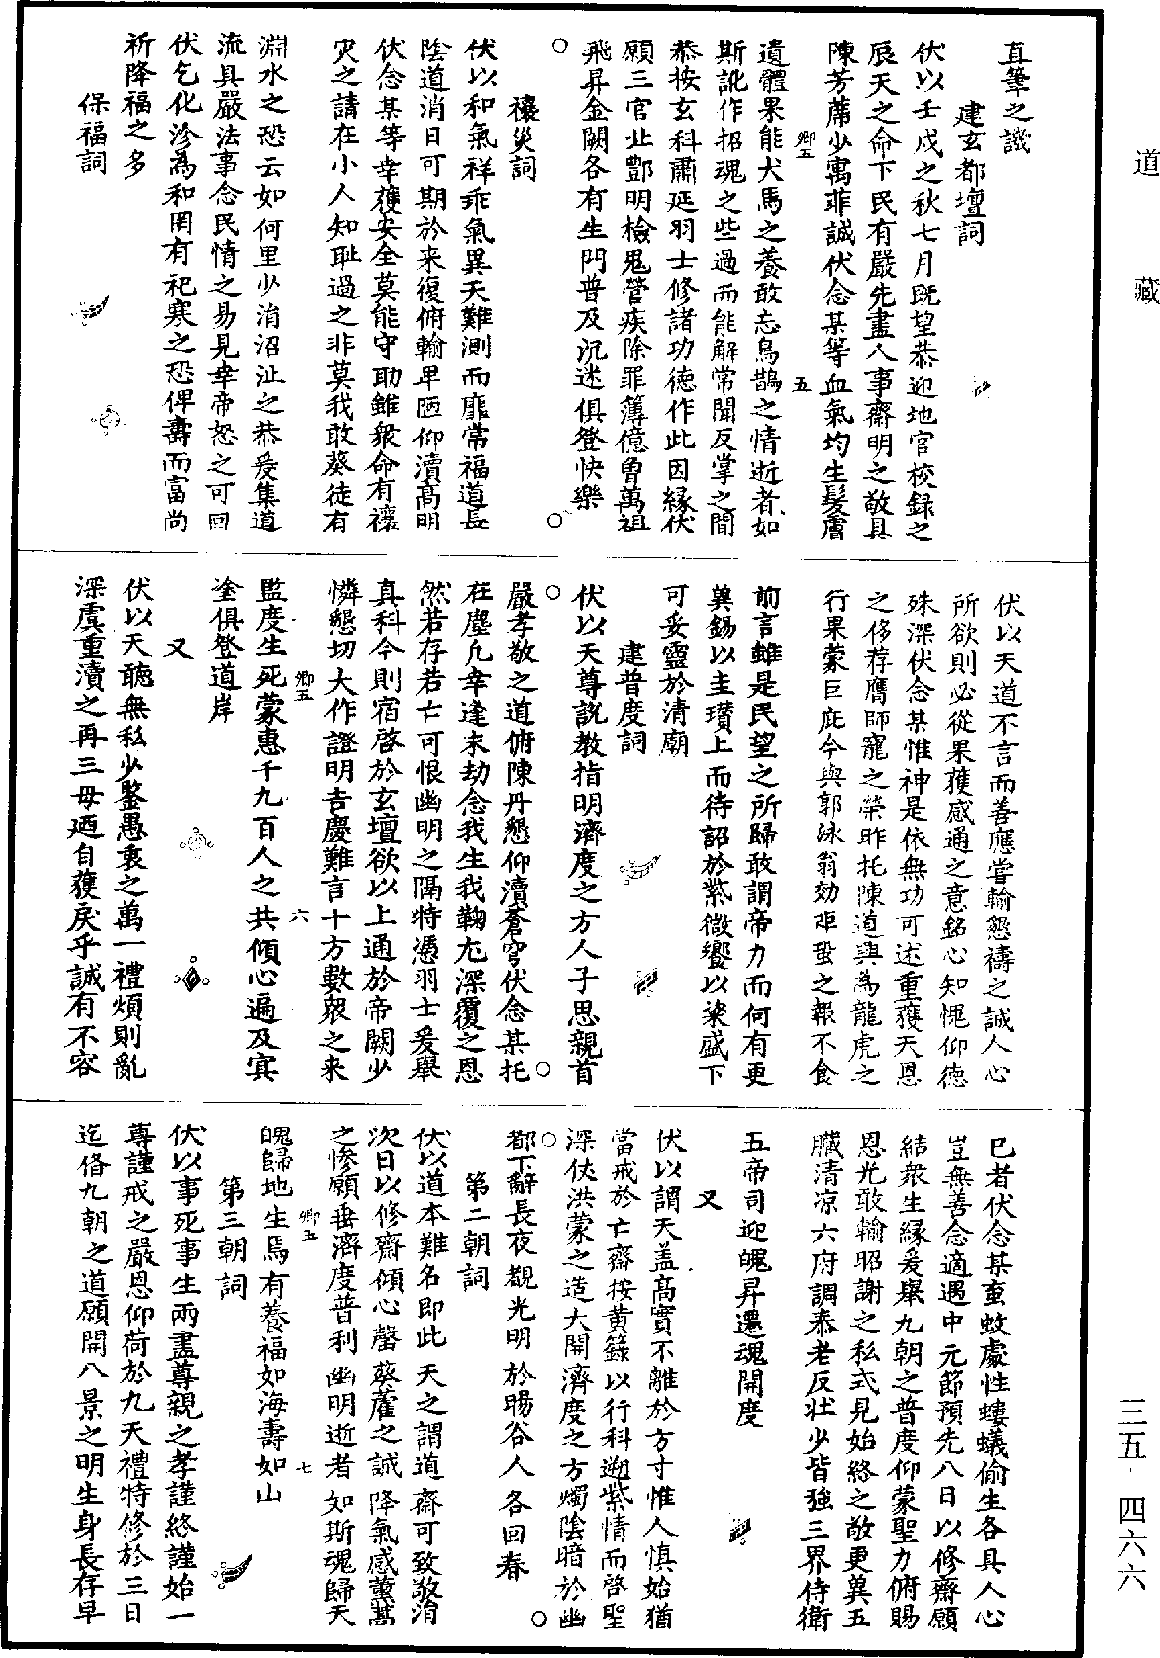 道藏
直筆之譏
建玄都壇詞
伏以壬戌之秋七月既望恭迎地官校錄之
辰天之命下民有嚴先盡人事齋明之敬具
陳芳薦少寓菲誠伏念某等血氣均生髮膚
卿五
五
遺體果能犬馬之養敢忘烏鵲之情逝者如
斯訛作招魂之些過而能解常聞反掌之間
恭按玄科肅延羽士修諸功德作此因緣伏
願三官北酆明檢鬼管疾除罪簿億魯萬祖
飛昇金闕各有生門普及沉迷俱登快樂
○　○
禳災詞
伏以和氣祥乖氣異天難測而靡常福道長
陰道消日可期於来復俯輸卑陋仰瀆高明
伏念某等幸獲安全莫能守助雖衆命有禳
災之請在小人知恥過之非莫我敢葵徒有
淵水之恐云如何里少消沼沚之恭爰集道
流具嚴法事念民情之易見幸帝怒之可回
伏乞化沴為和罔有祀寒之恐俾壽而富尚
祈降福之多
保福詞
伏以天道不言而善應嘗輸懇禱之誠人心
所欲則必從果獲感通之意銘心知愧仰德
殊深伏念某惟神是依無功可述重獲天恩
之侈荐膺師寵之榮昨托陳道與為龍虎之
行果蒙巨庇今與郭泳翁効駏蛩之報不食
前言雖是民望之所歸敢謂帝力而何有更
冀錫以圭瓚上而待詔於紫微饗以粢盛下
可妥靈於清廟
建普度詞
伏以天尊說教指明濟度之方人子思親首
○　○
嚴孝敬之道俯陳丹懇仰瀆蒼穹伏念某托
在塵凡幸逢末劫念我生我鞠尢深覆之恩
然若存若亡可恨幽明之隔特憑羽士爰舉
真科今則宿啓於玄壇欲以上通於帝闕少
憐懇切大作證明吉慶難言十方數衆之来
卿五
六
監度生死蒙惠千九百人之共傾心遍及㝠
塗俱登道岸
又
伏以天聽無私少鑒愚衷之萬一禮煩則亂
深虞重瀆之再三毋廼自獲戾乎誠有不容
已者伏念某蚉蚊處性螻蟻偷生各具人心
豈無善念適遇中元節預先八日以修齋願
結衆生緣爰舉九朝之普度仰蒙聖力俯賜
恩光敢輸昭謝之私式見始終之敬更冀五
臟清凉六府調泰老反壯少皆強三界侍衛
五帝司迎魄昇還魂開度
又
伏以謂天蓋高實不離於方寸惟人慎始猶
當戒於亡齋按黃籙以行科遡紫情而啓聖
深伕洪蒙之造大開濟度之方燭陰暗於幽
○　○
都下辭長夜覩光明於暘谷人各回春
第二朝詞
伏以道本難名即此天之謂道齋可致敬消
次日以修齋傾心罄葵藿之誠降氣感薰蒿
之慘願垂濟度普利幽明逝者如斯魂歸天
卿五
七
魄歸地生焉有養福如海壽如山
第三朝詞
伏以事死事生兩盡尊親之孝謹終謹始一
專謹戒之嚴恩仰荷於九天禮特修於三日
迄偹九朝之道願開八景之明生身長存早
三五‧四六六